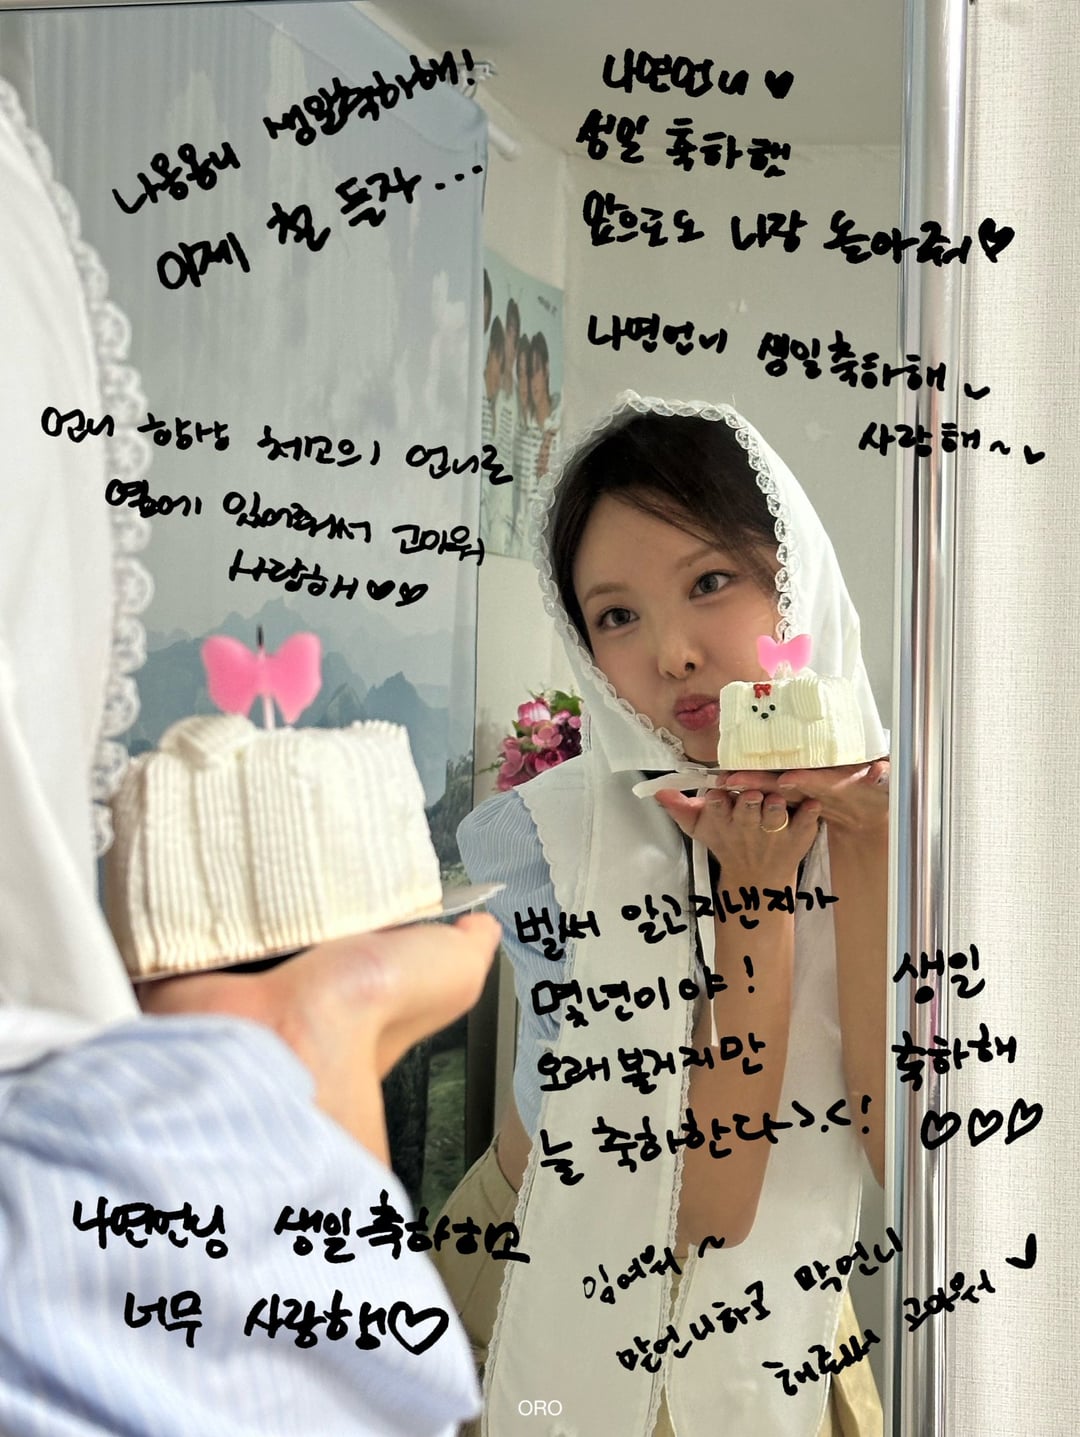 나용용니 생일축하해!
이제 철 들자...
나연언니 ♥
생일 축하했
앞으로도 나랑 놀아줘 ♥
나연언니 생일축하해
사랑해~
언니 항상 최고의 언니로
옆에 있어줘서 고마워
사랑해 ♥♥
벌써 알고지낸지가
몇년이야!
오래볼거지만
늘 축하한다>.<!
생일
축하해
♡♡♡
나연언닝 생일축하하고
너무 사랑행♡
막언니
해줘서 고마워
ORO